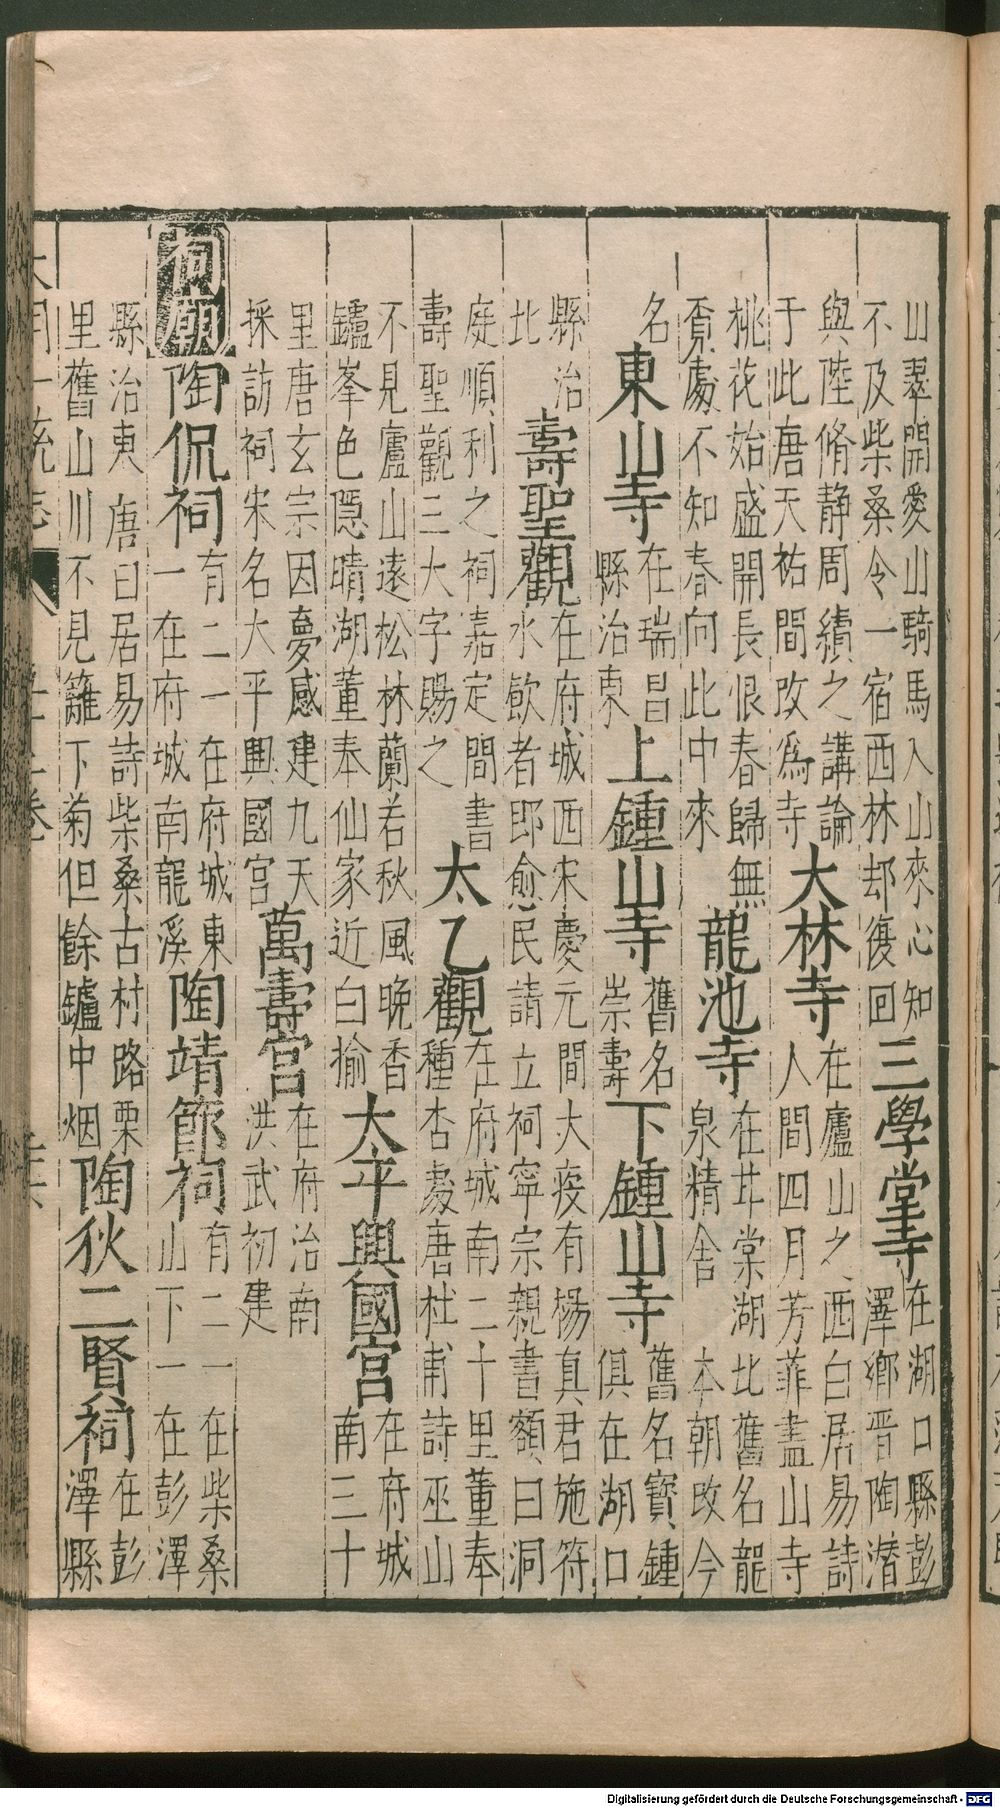 山翠開愛山騎馬入山來心知
不及柴桑令一宿西林却復回
三學堂寺
在湖口縣彭
澤鄉晉陶潛
與陸脩靜周續之講論
于此唐天祐間改為寺
大林寺
在廬山之西白居易詩
人間四月芳菲盡山寺
桃花始盛開長恨春歸無
覔處不知春向此中來
龍池寺
在甘棠湖北舊名龍
泉精舍 本朝改今
名
東山寺
在瑞昌
縣治東
上鍾山寺
舊名
崇壽
下鍾山寺
舊名寶鍾
俱在湖口
縣治
北
壽聖觀
在府城西宋慶元間大疫有楊真君施符
水飲者即愈民請立祠寧宗親書額曰洞
庭順利之祠嘉定間書
壽聖觀三大字賜之
太乙觀
在府城南二十里董奉
種杏處唐杜甫詩巫山
不見廬山遠松林蘭若秋風晚香
鑪峯色隱晴湖董奉仙家近白揄
太平興國宮
在府城
南三十
里唐玄宗因夢感建九天
採訪祠宋名大平興國宮
萬壽宮
在府治南
洪武初建
祠廟
陶侃祠
有二一在府城東
一在府城南龍溪
陶靖節祠
有二一在柴桑
山下一在彭澤
縣治東 唐白居易詩柴桑古村路栗
里舊山川不見籬下菊但餘鑪中烟
陶狄二賢祠
在彭
澤縣
Digitalisierung gefördert durch die Deutsche Forschungsgemeinschaft - DFG